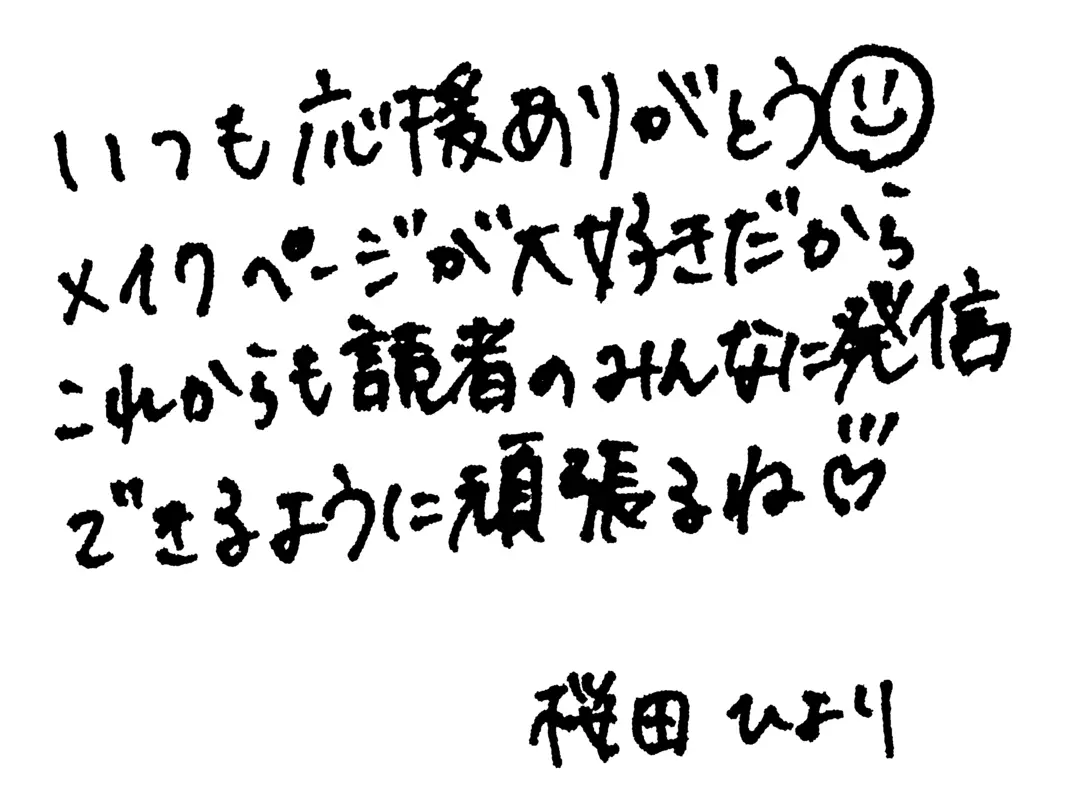 いつも応援ありがとう
メイクページが大好きだから
これからも読者のみんなに発信
できるように頑張るね♡
桜田ひより